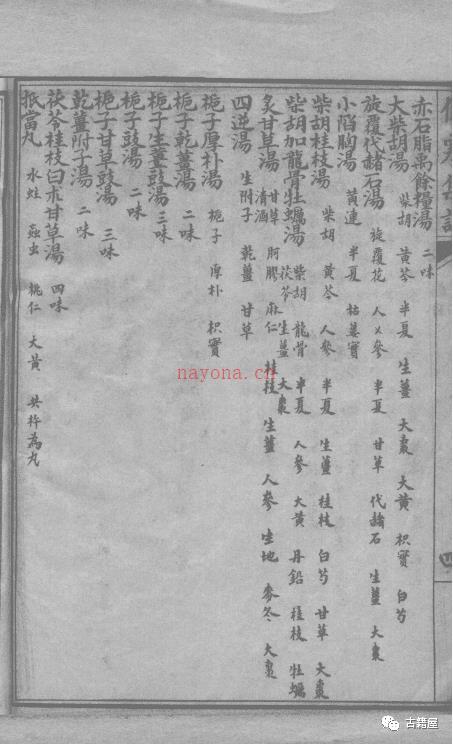 赤石脂禹餘糧湯 二味
大柴胡湯 柴胡 黃芩 半夏 生薑 大棗 大黃 枳實 白芍
旋覆代赭石湯 旋覆花 人參 半夏 甘草 代赭石 生薑 大棗
小陷胸湯 黃連 半夏 枯蔞實
柴胡桂枝湯 柴胡 黃芩 人參 半夏 生薑 桂枝 白芍 甘草 大棗
柴胡加龍骨牡蠣湯 柴胡 龍骨 半夏 人參 大黃 丹鉛 桂枝 牡蠣 茯苓 生薑 大棗
炙甘草湯 甘草 阿膠 麻仁 桂枝 生薑 人參 生地 麥冬 大棗 清酒
四逆湯 生附子 乾薑 甘草
梔子厚朴湯 梔子 厚朴 枳實
梔子乾薑湯 二味
梔子生薑豉湯 三味
梔子豉湯 二味
梔子甘草豉湯 三味
乾薑附子湯 二味
茯苓桂枝白朮甘草湯 四味
抵當丸 水蛭 蝱虫 桃仁 大黃 共杵為丸
四
nayona.cn
古籍屋